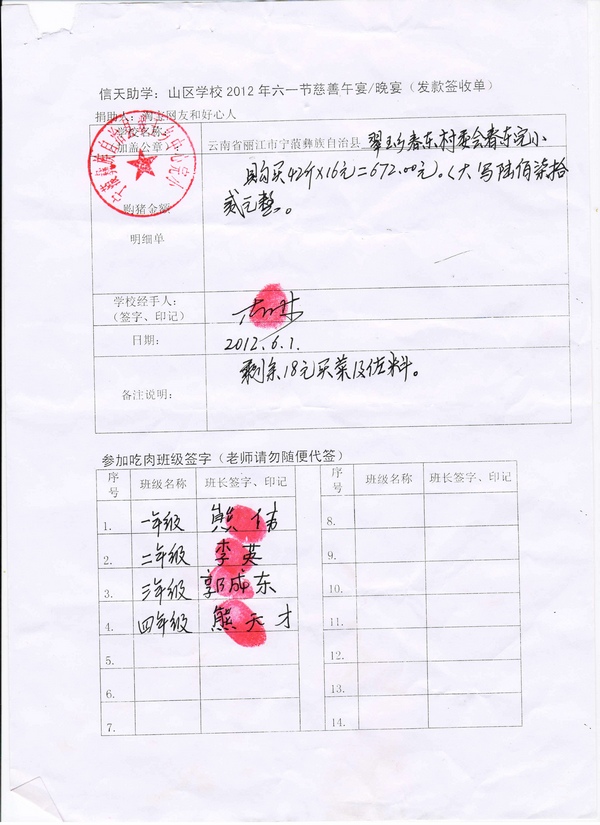 信天助学：山区学校2012年六一节慈善午宴/晚宴（发款签收单）
捐助人：淘上网友和好心人
学校名称
（加盖公章） 云南省丽江市宁蒗彝族自治县 翠玉乡春东村委会春东完小
购猪金额
明细单
购买42斤×16元=672.00元。（大写陆佰柒拾
贰元整。
学校经手人：
（签字、印记）
日期： 2012.6.1.
备注说明： 剩余18元买菜及佐料。
参加吃肉班级签字（老师请勿随便代签）
序号 班级名称 班长签字、印记 序号 班级名称 班长签字、印记
1. 一年级 熊伟 8.
2. 二年级 李英 9.
3. 三年级 郭成东 10.
4. 四年级 熊天才 11.
5. 12.
6. 13.
7. 14.